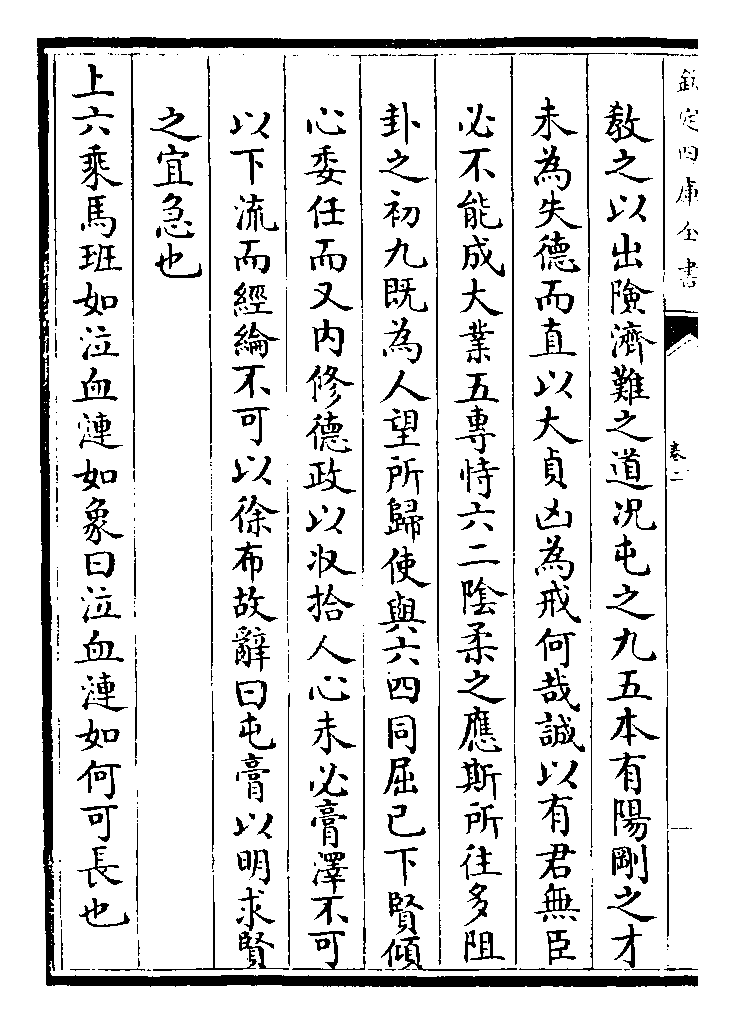 欽定四庫全書
卷二
教之以出險濟難之道况屯之九五本有陽剛之才
未為失德而直以大貞凶為戒何哉誠以有君無臣
必不能成大業五專恃六二陰柔之應斯所往多阻
卦之初九既為人望所歸使與六四同屈已下賢傾
心委任而又内修德政以收拾人心未必膏澤不可
以下流而經綸不可以徐布故辭曰屯膏以明求賢
之宜急也
上六乘馬班如泣血漣如象曰泣血漣如何可長也